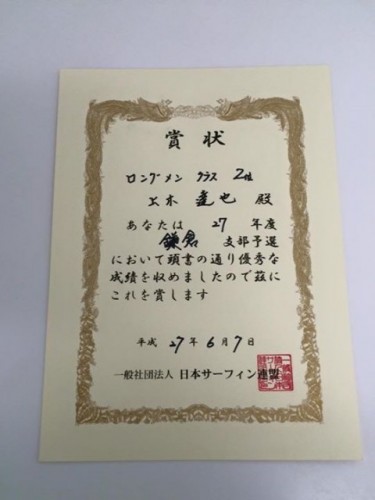 賞状
ロングメン クラス 2位
上木 達也 殿
あなたは 27 年度
鎌倉 支部予選
において頭書の通り優秀な
成績を収めましたので茲に
これを賞します
平成 27 年 6 月 7 日
一般社団法人 日本サーフィン連盟